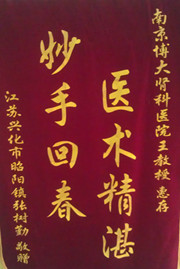 南京博大肾科医院王教授惠存
医术精湛
妙手回春
江苏兴化市昭阳镇张树勤敬赠